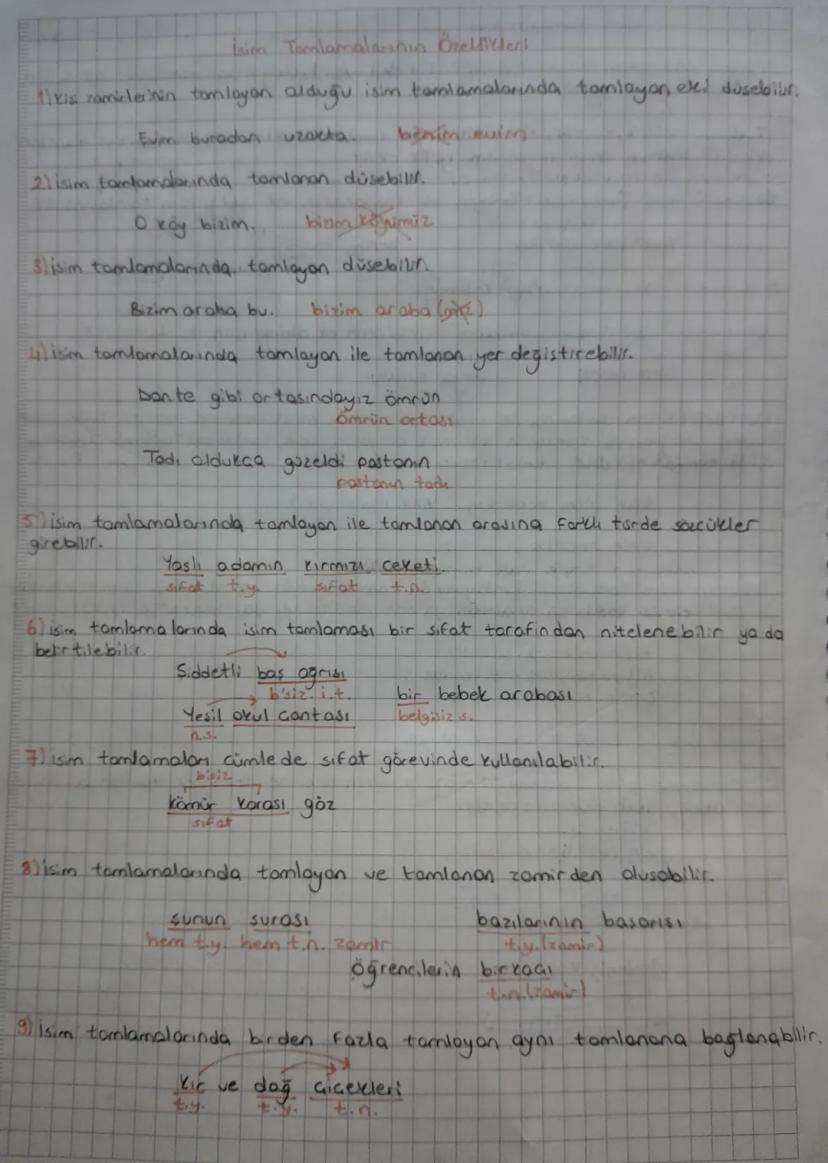 İsim Tamlamalarının Özellikleri
1) Kişi zamirlerinin tamlayan olduğu isim tamlamalarında tamlayan eki düşebilir.
Evim buradan uzakta. benim evim
2) isim tamlamalarında tamlanan düşebilir.
O köy bizim. bizim köyümüz
3) isim tamlamalarında tamlayan düşebilir
Bizim araba bu. bizim araba
4) isim tamlamalarında tamlayan ile tamlanan yer değiştirebilir.
Dante gibi ortasındayız ömrün
ömrün ortası
Tadı oldukca güzeldi pastanın
pastanın tadı
5) isim tamlamalarında tamlayan ile tamlanan arasına farklı türde sözcükler
girebilir.
Yaşlı adamın kırmızı ceketi.
sıfat t.y. sıfat t.n.
6) isim tamlamalarında isim tamlaması bir sıfat tarafından nitelenebilir ya da
belirtilebilir.
Şiddetli baş ağrısı
b'siz i.t. bir bebek arabası
Yeşil okul çantası belgisiz s.
n.s.
7) isim tamlamaları cümlede sıfat görevinde kullanılabilir.
b'siz
kömür karası göz
sıfat
8) isim tamlamalarında tamlayan ve tamlanan zamirden oluşabilir.
şunun şurası bazılarının başarısı
hem t.y. hem t.n. zamir t.y. (zamir)
Öğrencilerin birkaçı
t.n. (zamir)
9) isim tamlamalarında birden fazla tamlayan aynı tamlanana bağlanabilir.
Kır ve dağ çiçekleri
t.y. t.y. t.n.